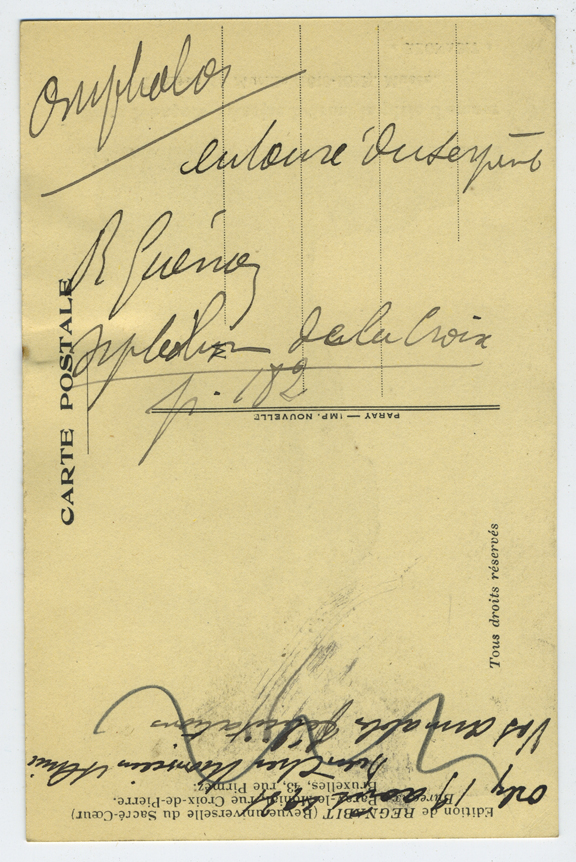 Omphalos
entouré du serpent
R Guénon
Symbolisme de la Croix
p. 182
CARTE POSTALE
PARAY — IMP. NOUVELLE
Tous droits réservés
Édition de REGNABIT (Revue universelle du Sacré-Cœur)
Paray-le-Monial, rue Croix-de-Pierre.
Bruxelles, 43, rue Pirmez.
Orly, 19
Cher Monsieur et Ami
Vos aimables félicitations